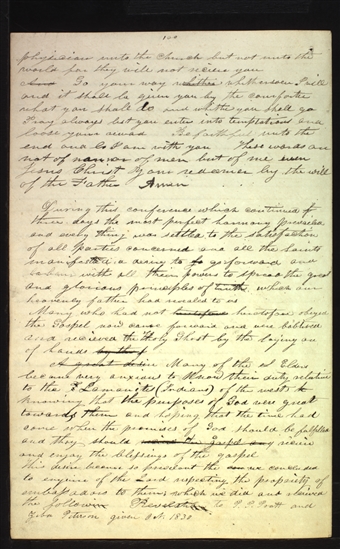 physician unto the church but not unto the
world for they will not receive you
Go your way whithersoever I will
and it shall be given you by the comforter
what you shall do and whither you shall go
Pray always lest you enter into temptations and
loose your reward Be faithful unto the
end and lo I am with you These words are
not of man or of men but of me even
Jesus Christ your redeemer by the will
of the Father Amen
During this conference which continued
three days the most perfect harmony prevailed
and every thing was settled to the satisfaction
of all parties concerned and all the saints
manifested a desire to go forward and
labour with all their powers to spread the great
and glorious principles of truth which our
heavenly father had revealed to us
Many who had not heretofore obeyed
the Gospel now came forward and were baptised
and received the Holy Ghost by the laying on
of hands
A great desire Many of the Elders
became very anxious to know their duty relative
to the Lamanites (Indians) of the west &
knowing that the purposes of God were great
towards them and hoping that the time had
come when the promises of God should be fulfilled
and they should receive
and enjoy the blessings of the gospel
this desire became so prevalent the we concluded
to enquire of the Lord respecting the propriety of
which we did and received
the following Revelation to P P Pratt and
Ziba Peterson given Oct. 1830